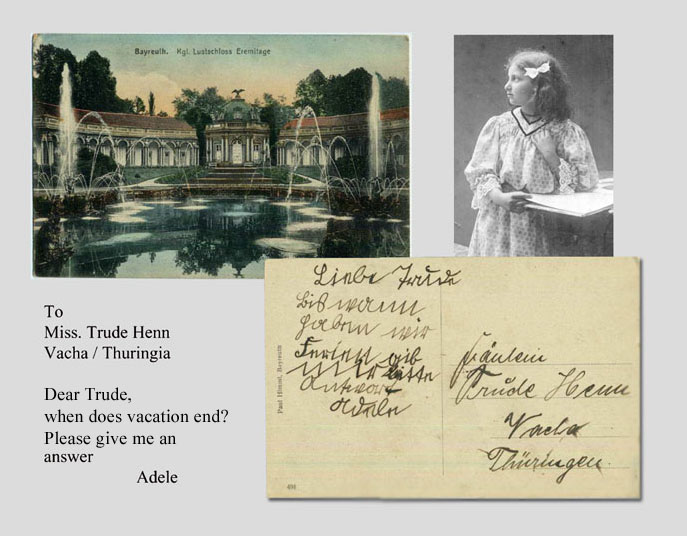 Bayreuth. Kgl. Lustschloss Eremitage
To
Miss. Trude Henn
Vacha / Thuringia
Dear Trude,
when does vacation end?
Please give me an
answer
Adele
Liebe Trude
bis wann
haben wir
Ferien gib
mir bitte
Antwort
Adele
Paul Bayreuth
Fräulein
Trude Henn
Vacha
Thüringen.